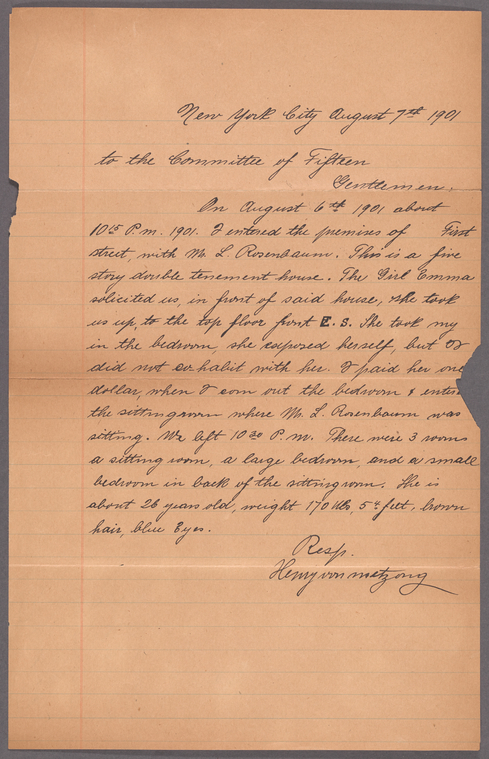 New York City August 7th 1901
to the Committee of Fifteen
Gentlemen,
On August 6th 1901 about
10 15 P.m. 1901. I entered the premises of First
street, with Mr. L. Rosenbaum. This is a five
story double tenement house. The Girl Emma
solicited us, in front of said house, she took
us up, to the top floor front E. S. She took my
in the bedroom, she exposed herself, but I
did not co habit with her. I paid her one
dollar, when I com out the bedroom &
the sittingroom where Mr. L. Rosenbaum was
sitting. We left 10 30 P.m. There were 3 rooms
a sitting room, a large bedroom, and a small
bedroom in back of the sittingroom. She is
about 26 years old, weight 170 lbs, 5 4 feet, brown
hair, blue Eyes.
Resp.
Henry von